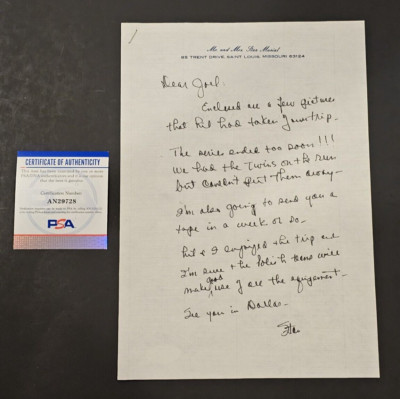 Mr. and Mrs. Stan Musial
85 TRENT DRIVE, SAINT LOUIS, MISSOURI 63124
Dear Joel.
Enclosed are a few pictures
that Kil had taken of our trip.
The series ended too soon!!!
We had the Twins on the run
but couldn't put them away-
I'm also going to send you a
tape in a week or so-
Kil & I enjoyed the trip and
I'm sure the Polish teams will
make good use of all the equipment-
See you in Dallas-
Stan
CERTIFICATE OF AUTHENTICITY
Certification Number
AN29728
PSA